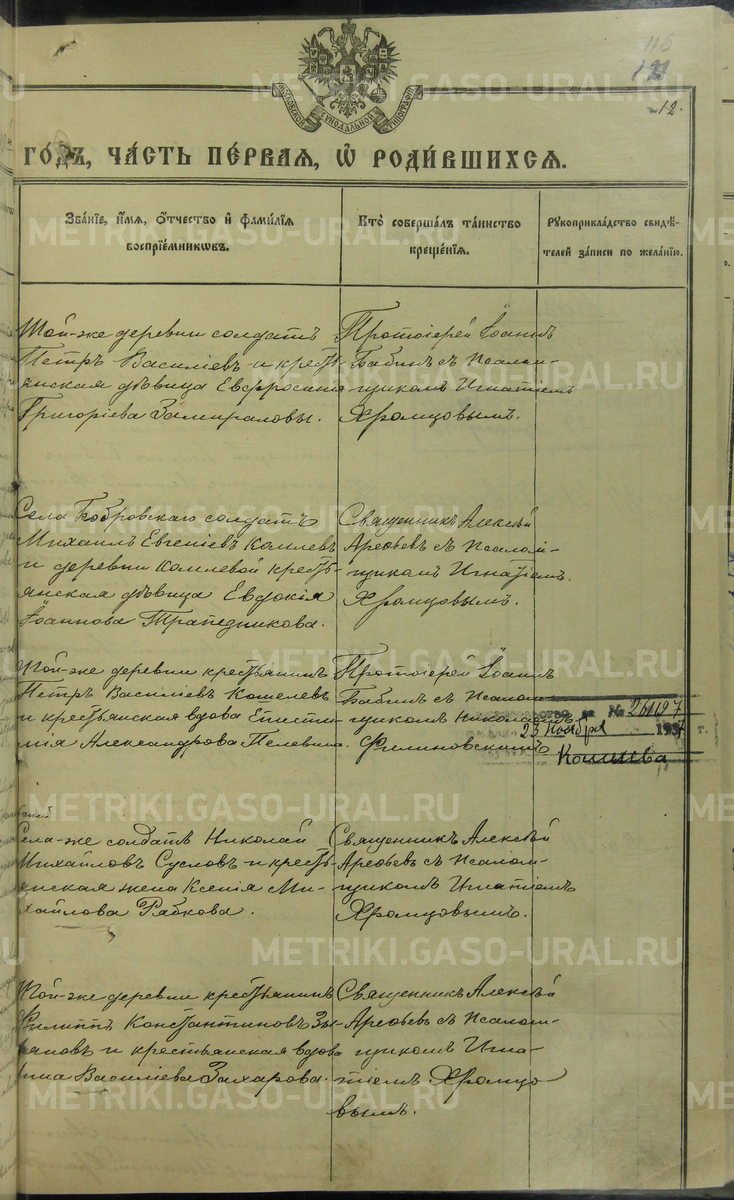 116
12.
МОСКОВСКОЙ СѴНОДАЛЬНОЙ ТИПОГРАФІИ
ГО́ДЪ, ЧА́СТЬ ПЕ́РВАЯ, Ѡ РОДИ́ВШИХСЯ.
Зва́нїе, и҆́мя, ѻ҆́тчество и҆ фамилїя
воспрїе́мникѡвъ.
Кто̀ соверша́лъ та́инство
креще́нїя.
Рꙋкоприкла́дство свидѣ́-
телей за́писи по жела́нїю.
Той-же деревни солдатъ
Петръ Василіевъ и кресть-
янская дѣвица Евфросинія
Григоріева Замираловы.
Протоіерей Іоаннъ
Бабинъ съ псалом-
щикомъ Игнатіемъ
Хромцовымъ.
Села Бобровскаго солдатъ
Михаилъ Евгеніевъ Комлевъ
и деревни Комлевой кресть-
янская дѣвица Евдокія
Іоаннова Трапезникова.
Священникъ Алексѣй
Арефьевъ съ псалом-
щикомъ Игнатіемъ
Хромцовымъ.
Той-же деревни крестьянинъ
Петръ Василіевъ Кошелевъ
и крестьянская вдова Еписти-
мія Александрова Пелевина.
Протоіерей Іоаннъ
Бабинъ съ псалом-
щикомъ Николаемъ
Филиновскимъ
№
23 Ноября 1937 г.
Села-же солдатъ Николай
Михайловъ Сусловъ и кресть-
янская жена Ксенія Ми-
хайлова Рябкова.
Священникъ Алексѣй
Арефьевъ съ псалом-
щикомъ Игнатіемъ
Хромцовымъ.
Той-же деревни крестьянинъ
Филиппъ Константиновъ Зы-
ряновъ и крестьянская вдова
Василіева Захарова.
Священникъ Алексѣй
Арефьевъ съ псалом-
щикомъ Игна-
тіемъ Хромцо-
вымъ.
METRIKI.GASO-URAL.RU